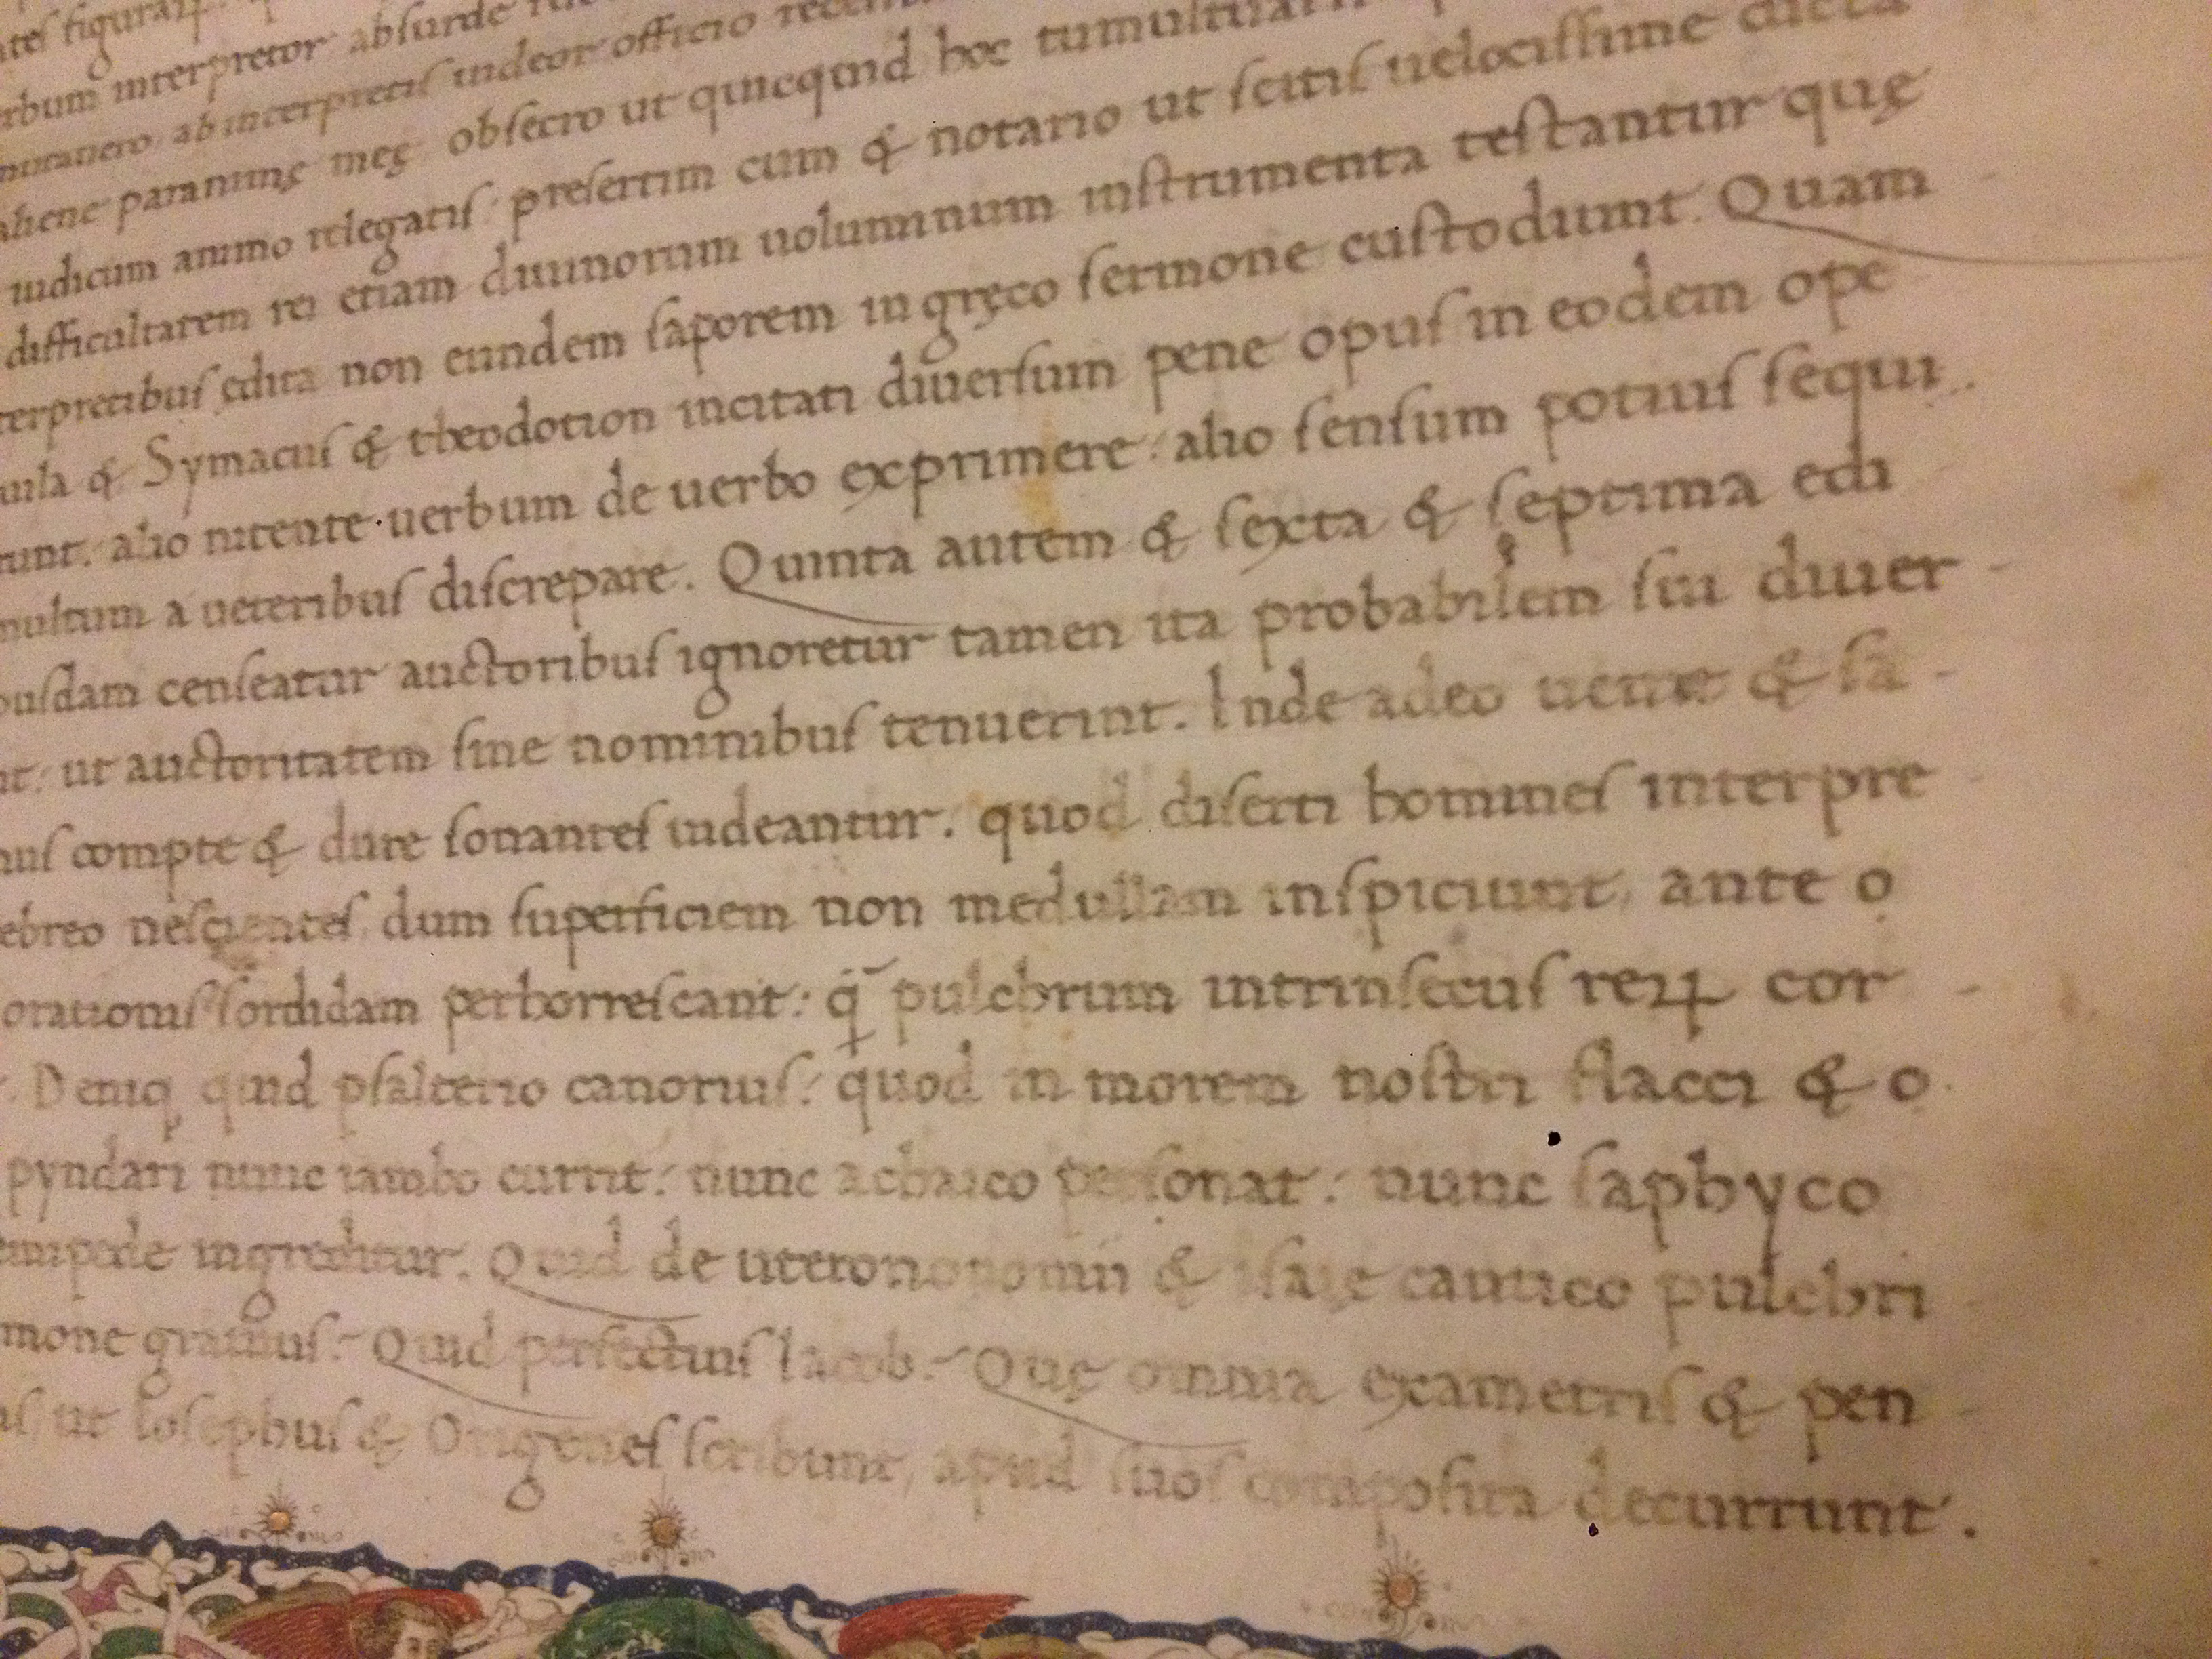 figurat
interpretor absurde
ab interpretis uideor officio
paranimę meę obsecro ut quicquid hoc
iudicum animo relegatis: presertim cum & notario ut scitis uelocissime dicta
difficultatem rei etiam diuinorum uoluminum instrumenta testantur quę
terpretibus edita non eundem saporem in gręco sermone custodiunt. Quam
uila & Symacus & theodotion incitati diuersum pene opus in eodem ope
runt: alio nitente uerbum de uerbo exprimere: alio sensum potius sequi
multum a ueteribus discrepare. Quinta autem & sexta & septima edi
ousdam censeatur auctoribus ignoretur tamen ita probabilem sui diuer
nt: ut auctoritatem sine nominibus tenuerint. Inde adeo uenit & sa
nus compte & dure sonantes uideantur. quod diserti homines interpre
ebreo nescientes, dum superficiem non medullam inspiciunt, ante o
orationis sordidam perhorrescant: q̃ pulchrum intrinsecus reꝝ cor
Deniq quid psalterio canorius: quod in morem nostri flacci & o
pyndari nunc iambo currit: nunc achaico personat: nunc saphyco
mipede ingreditur. Quid de uterononomii & isaię cantico pulchri
mone grauius: Quid perfectius Iacob: Quę omnia exametris & pen
is, ut Iosephus & Origenes scribunt, apud suos composita decurrunt.